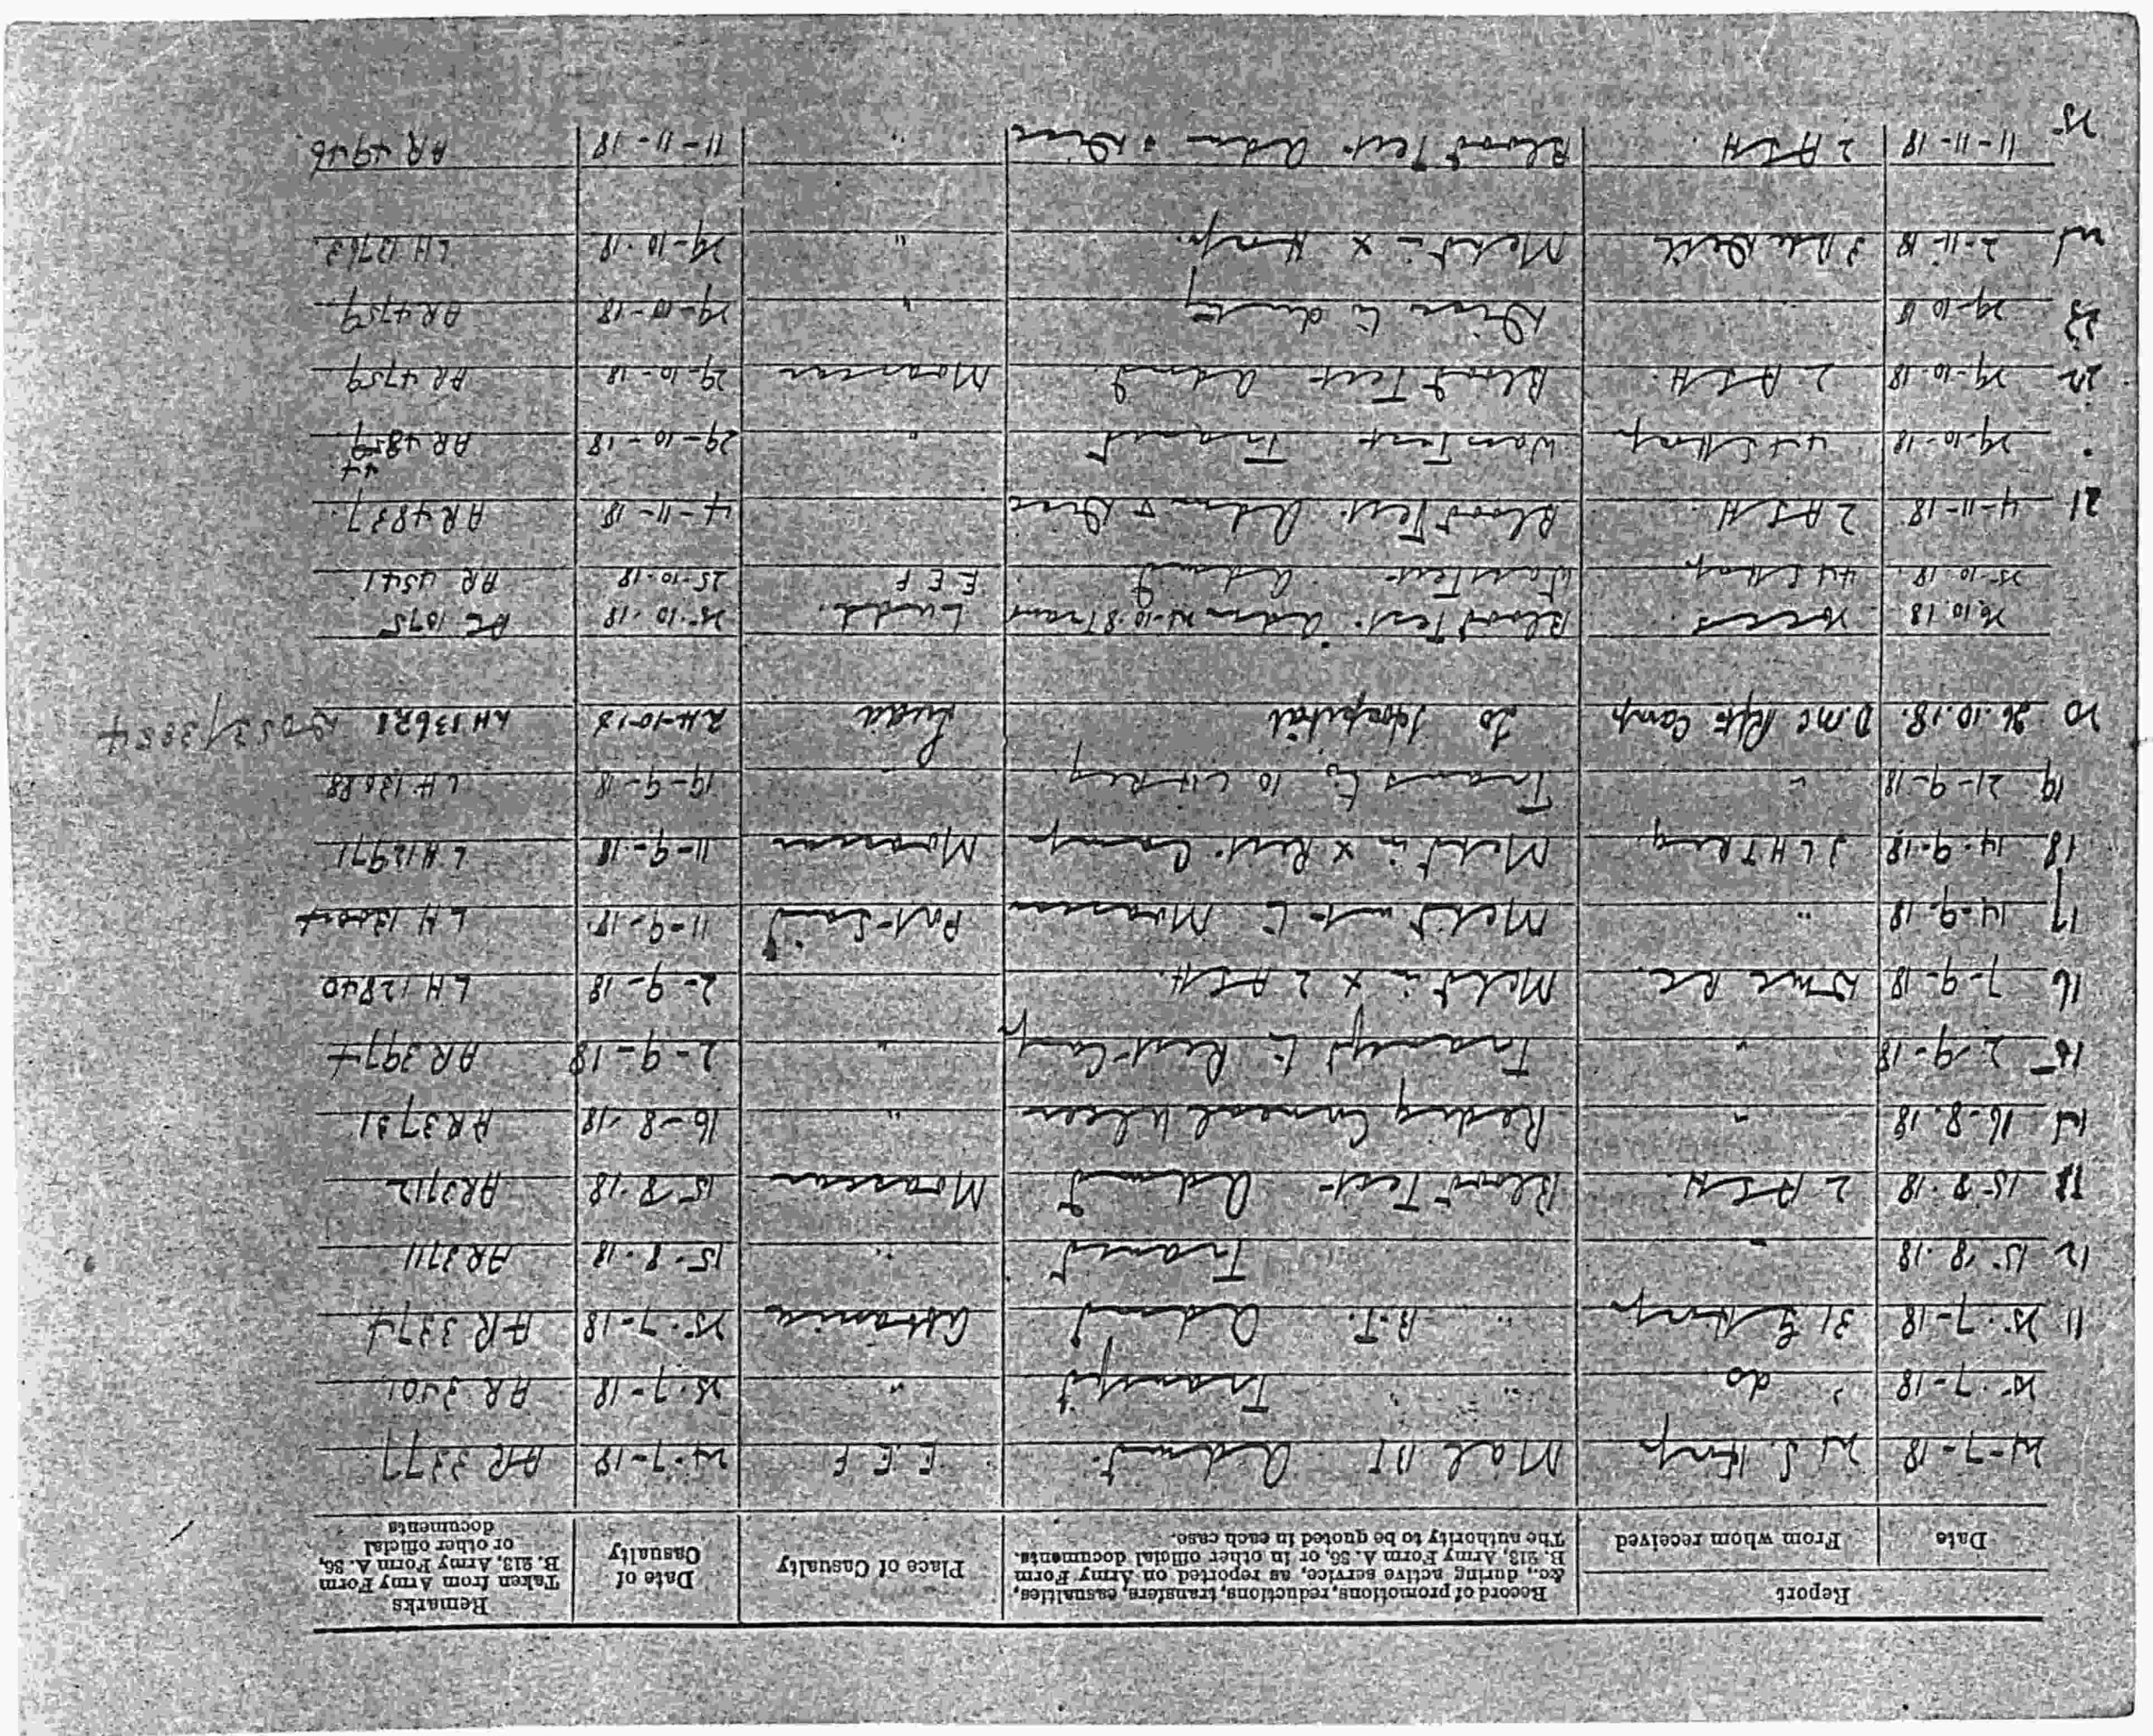 Report
Record of promotions, reductions, transfers, casualties, &c., during active service, as reported on Army Form B. 213, Army Form A. 36, or in other official documents. The authority to be quoted in each case.
Place of Casualty
Date of Casualty
Remarks
Taken from Army Form B. 213, Army Form A. 36, or other official documents
Date
From whom received
24-7-18 24 S. Hosp Mal BT Admt. E E F 24-7-18 AR 3377
25-7-18 " do " " Transft " 25-7-18 AR 3401
11 25-7-18 31 G Hosp " B.T. Admt Abbassia 25-7-18 AR 3374
12 15-8-18 " Transf " 15-8-18 AR3711
15-8-18 2 ASH Blood Test Admt Moascar 15-8-18 AR3712
14 16-8-18 " Corneal Ulcer " 16-8-18 AR3731
15 2-9-18 " Transft to Rest Camp " 2-9-18 AR 3974
16 7-9-18 DMC RC M in x 2 ASH. 2-9-18 LH 12840
17 14-9-18 " M out to Moascar Port Said 11-9-18
18 14-9-18 3 LHTReg M in x Rest Camp Moascar 11-9-18 LH12971
19 21-9-18 " Trans to 10 LH Reg 19-9-18 LH 13088
20 26.10.18. D.MC Rft Camp To Hospital Ludd 24-10-18 LH 13628
26.10.18 Blood Test. Adm 24-10-18 Trans Ludd. 25-10-18 AC 1075
25-10-18 44 S Hosp Test Admt E E F 25-10-18 AR 4541
21 4-11-18 2 ASH Blood Test. Adm & Disc 4-11-18 AR 4837
" 29-10-18 44 S Hosp Test Transf " 29-10-18 AR
22 29-10-18 2 ASH. Blood Test Admt Moascar 29-10-18 AR 4759
23 29-10-18 " Disc to duty " 29-10-18 AR 4759
24 2-11-18 M in x Hosp. " 29-10-18 LH 13763
25 11-11-18 2 ASH. Blood Test Adm & Disc " 11-11-18 AR 4946